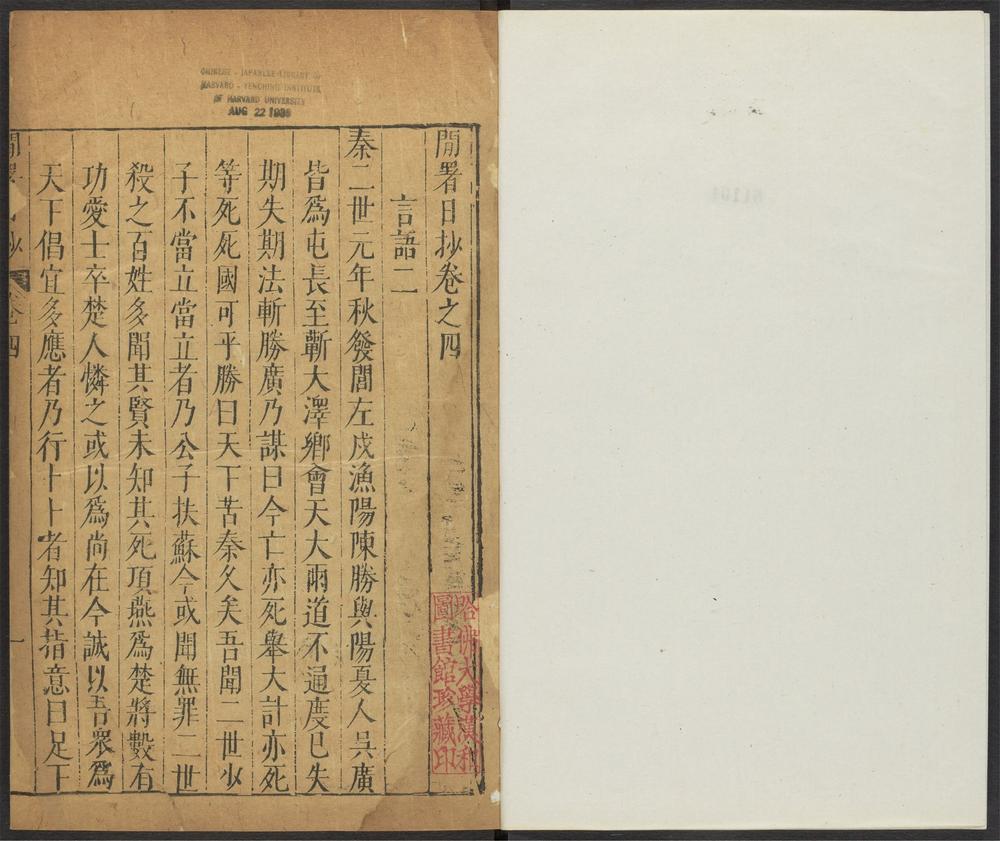 CHINESE - JAPANESE LIBRARY OF
HARVARD - YENCHING INSTITUTE
OF HARVARD UNIVERSITY
AUG 22 1936
閒署日抄卷之四
言語二
秦二世元年秋發閭左戍漁陽陳勝與陽夏人吳廣
皆爲屯長至蘄大澤鄉會天大雨道不通度已失
期失期法斬勝廣乃謀曰今亡亦死舉大計亦死
等死死國可乎勝曰天下苦秦久矣吾聞二世少
子不當立當立者乃公子扶蘇今或聞無罪二世
殺之百姓多聞其賢未知其死項燕爲楚將數有
功愛士卒楚人憐之或以爲尚在今誠以吾衆爲
天下倡宜多應者乃行卜卜者知其指意曰足下
卷四
一
哈佛大學漢和
圖書館珍藏印